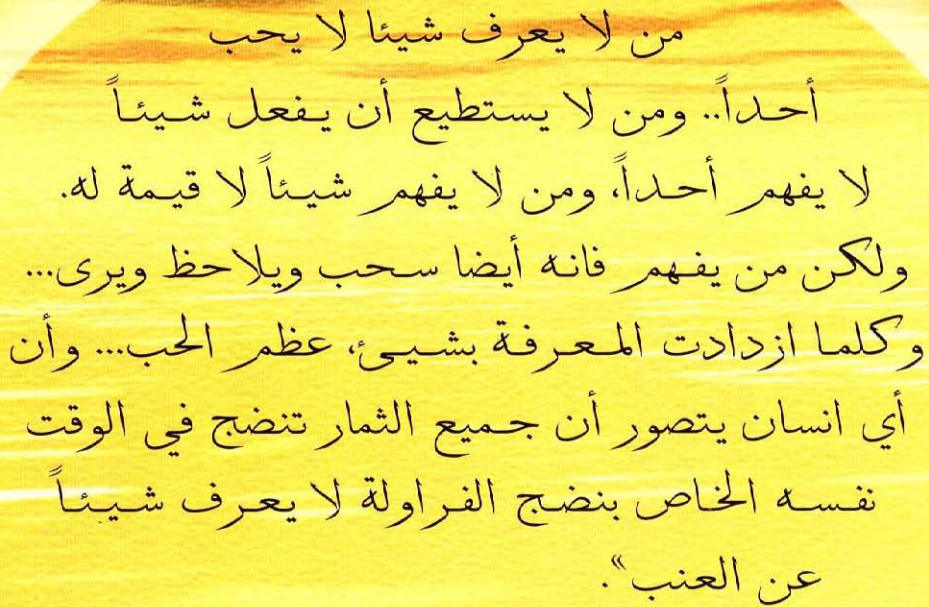 من لا يعرف شيئا لا يحب
أحداً.. ومن لا يستطيع أن يفعل شيئاً
لا يفهم أحداً، ومن لا يفهم شيئاً لا قيمة له.
ولكن من يفهم فانه أيضا سحب ويلاحظ ويرى...
وكلما ازدادت المعرفة بشيىء، عظم الحب... وأن
أي انسان يتصور أن جميع الثمار تنضج في الوقت
نفسه الخاص بنضج الفراولة لا يعرف شيئاً
عن العنب».